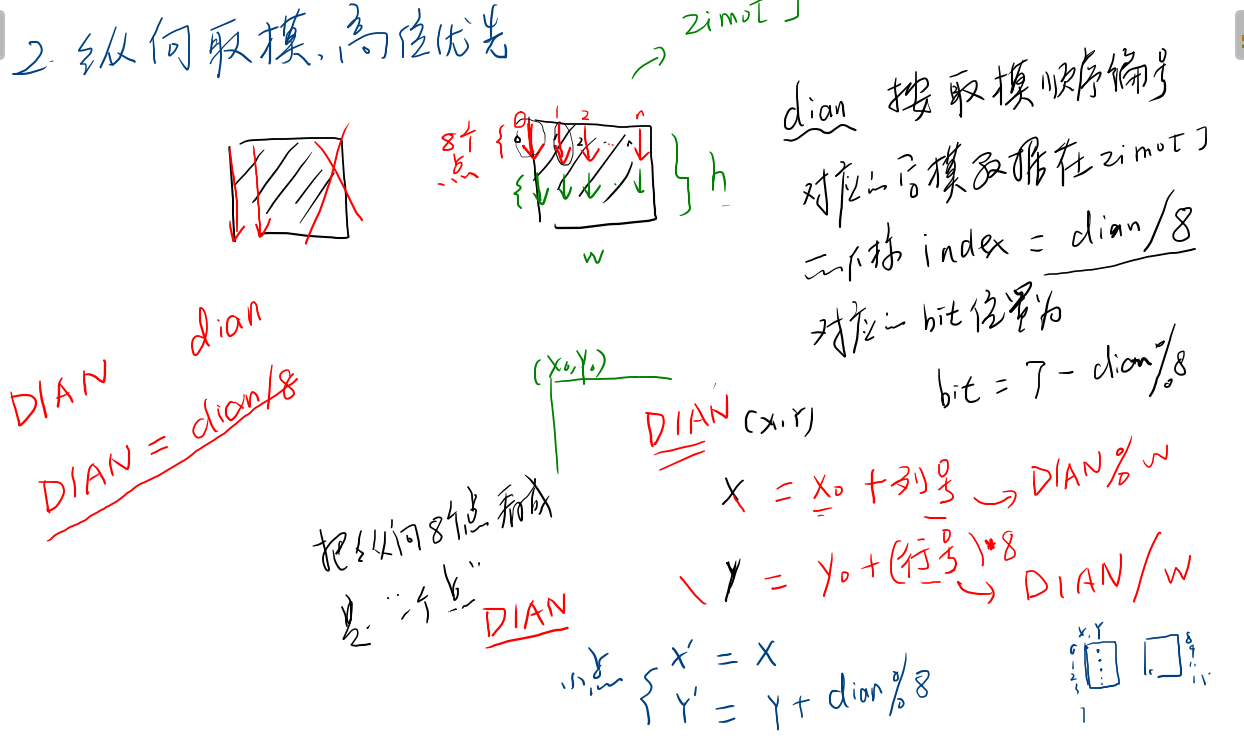 2. 纵向取模、高位优先
zimo[]
8个
点
0 1 2 n
0 1 2 ... n
h
w
dian 按取模顺序编号
对应的字模数据在zimo[]
的下标 index = dian/8
对应的bit位置为
bit = 7 - dian%8
DIAN dian
DIAN = dian/8
(X₀,Y₀)
DIAN (X,Y)
X = X₀ + 列号 → DIAN%w
Y = Y₀ + (行号)*8 → DIAN/w
把纵向8个点看成
是"一个点"
DIAN
小点 { X' = X
Y' = Y + dian%8
X,Y
0
1
2
3
7
8
9